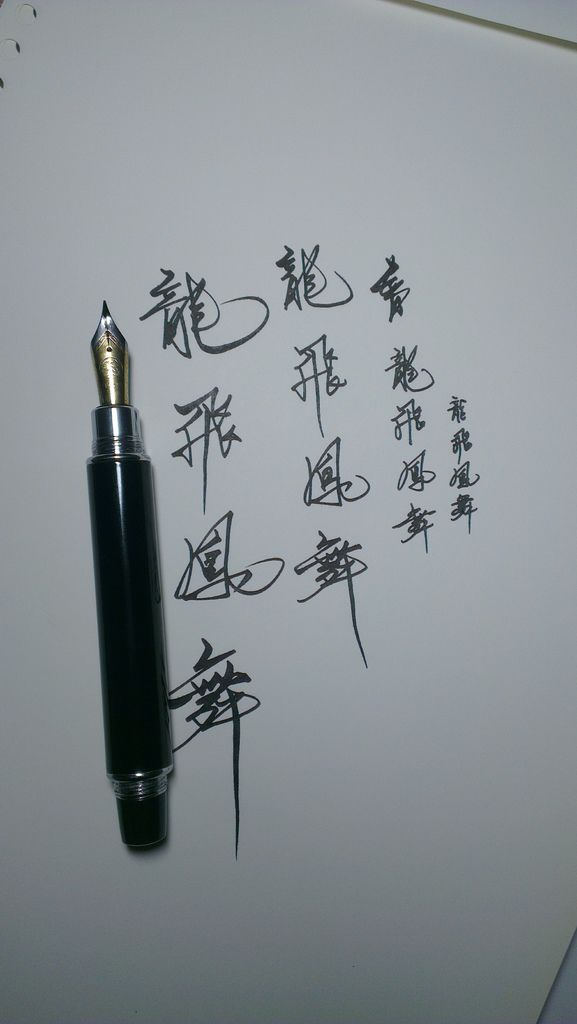 龍飛鳳舞
龍飛鳳舞
龍飛鳳舞
龍飛鳳舞